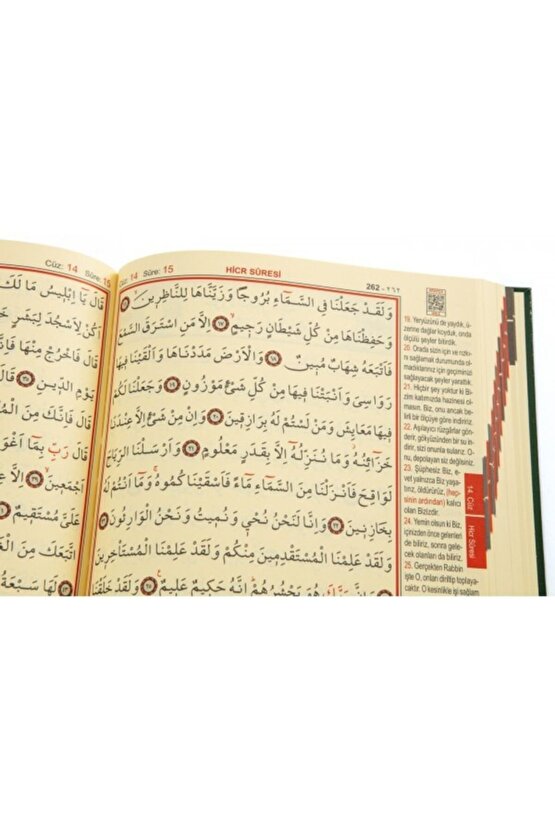 Cüz: 14 Sûre: 15
14 Sûre: 15 HİCR SÛRESİ 262 - ٢٦٢
وَلَقَدْ جَعَلْنَا فِي السَّمَٓاءِ بُرُوجًا وَزَيَّنَّاهَا لِلنَّاظِر۪ينَۙ ﴿١٦﴾
وَحَفِظْنَاهَا مِنْ كُلِّ شَيْطَانٍ رَج۪يمٍۙ ﴿١٧﴾ اِلَّا مَنِ اسْتَرَقَ السَّمْعَ
فَاَتْبَعَهُ شِهَابٌ مُب۪ينٌ ﴿١٨﴾ وَالْاَرْضَ مَدَدْنَاهَا وَاَلْقَيْنَا ف۪يهَا
رَوَاسِيَ وَاَنْبَتْنَا ف۪يهَا مِنْ كُلِّ شَيْءٍ مَوْزُونٍ ﴿١٩﴾ وَجَعَلْنَا لَكُمْ
ف۪يهَا مَعَايِشَ وَمَنْ لَسْتُمْ لَهُ بِرَازِق۪ينَ ﴿٢٠﴾ وَاِنْ مِنْ شَيْءٍ اِلَّا عِنْدَنَا
خَزَٓائِنُهُۘ وَمَا نُنَزِّلُهُٓ اِلَّا بِقَدَرٍ مَعْلُومٍ ﴿٢١﴾ وَاَرْسَلْنَا الرِّيَاحَ
لَوَاقِحَ فَاَنْزَلْنَا مِنَ السَّمَٓاءِ مَٓاءً فَاَسْقَيْنَاكُمُوهُۚ وَمَٓا اَنْتُمْ لَهُ
بِخَازِن۪ينَ ﴿٢٢﴾ وَاِنَّا لَنَحْنُ نُحْي۪ وَنُم۪يتُ وَنَحْنُ الْوَارِثُونَ ﴿٢٣﴾
وَلَقَدْ عَلِمْنَا الْمُسْتَقْدِم۪ينَ مِنْكُمْ وَلَقَدْ عَلِمْنَا الْمُسْتَأْخِر۪ينَ
﴿٢٤﴾ وَاِنَّ رَبَّكَ هُوَ يَحْشُرُهُمْۜ اِنَّهُ حَك۪يمٌ عَل۪يمٌ ﴿٢٥﴾ وَلَقَدْ خَلَقْنَا
19. Yeryüzünü de yaydık, ü-
zerine dağlar koyduk, onda
ölçülü şeyler bitirdik.
20. Orada sizin için ve rızkı-
nı sağlamak durumunda ol-
madıklarınız için geçiminizi
sağlayacak şeyler yarattık.
21. Hiçbir şey yoktur ki Bi-
zim katımızda hazinesi ol-
masın. Biz, onu ancak be-
lirli bir ölçüye göre indiririz.
22. Aşılayıcı rüzgârlar gön-
derir, gökyüzünden bir su in-
dirir, sizi onunla sularız. O-
nu, depolayan siz değilsiniz.
23. Şüphesiz Biz, e-
vet yalnızca Biz yaşa-
tırız, öldürürüz, (hep-
sinin ardından) kalıcı
olan Bizizdir.
24. Yemin olsun ki Biz,
içinizden önce gelenleri
de biliriz, sonra gele-
cek olanları da biliriz.
25. Gerçekten Rabbin
işte O, onları diriltip toplaya-
caktır. O kesinlikle işi sağlam
14. Cüz
Hicr Sûresi
قَالَ يَٓا اِبْل۪يسُ مَا لَكَ
اَكُنْ لِاَسْجُدَ لِبَشَرٍ
قَالَ فَاخْرُجْ مِنْهَا فَاِنَّكَ
يَوْمِ الدّ۪ينِ ﴿٣٥﴾ قَالَ
قَالَ فَاِنَّكَ مِنَ الْ
قَالَ رَبِّ بِمَٓا اَغْوَ
اَجْمَع۪ينَۙ ﴿٣٩﴾
عَلَيَّ مُسْتَق۪يمٌ ﴿٤١﴾
اتَّبَعَكَ مِنَ الْ
لَهَا سَبْعَةُ